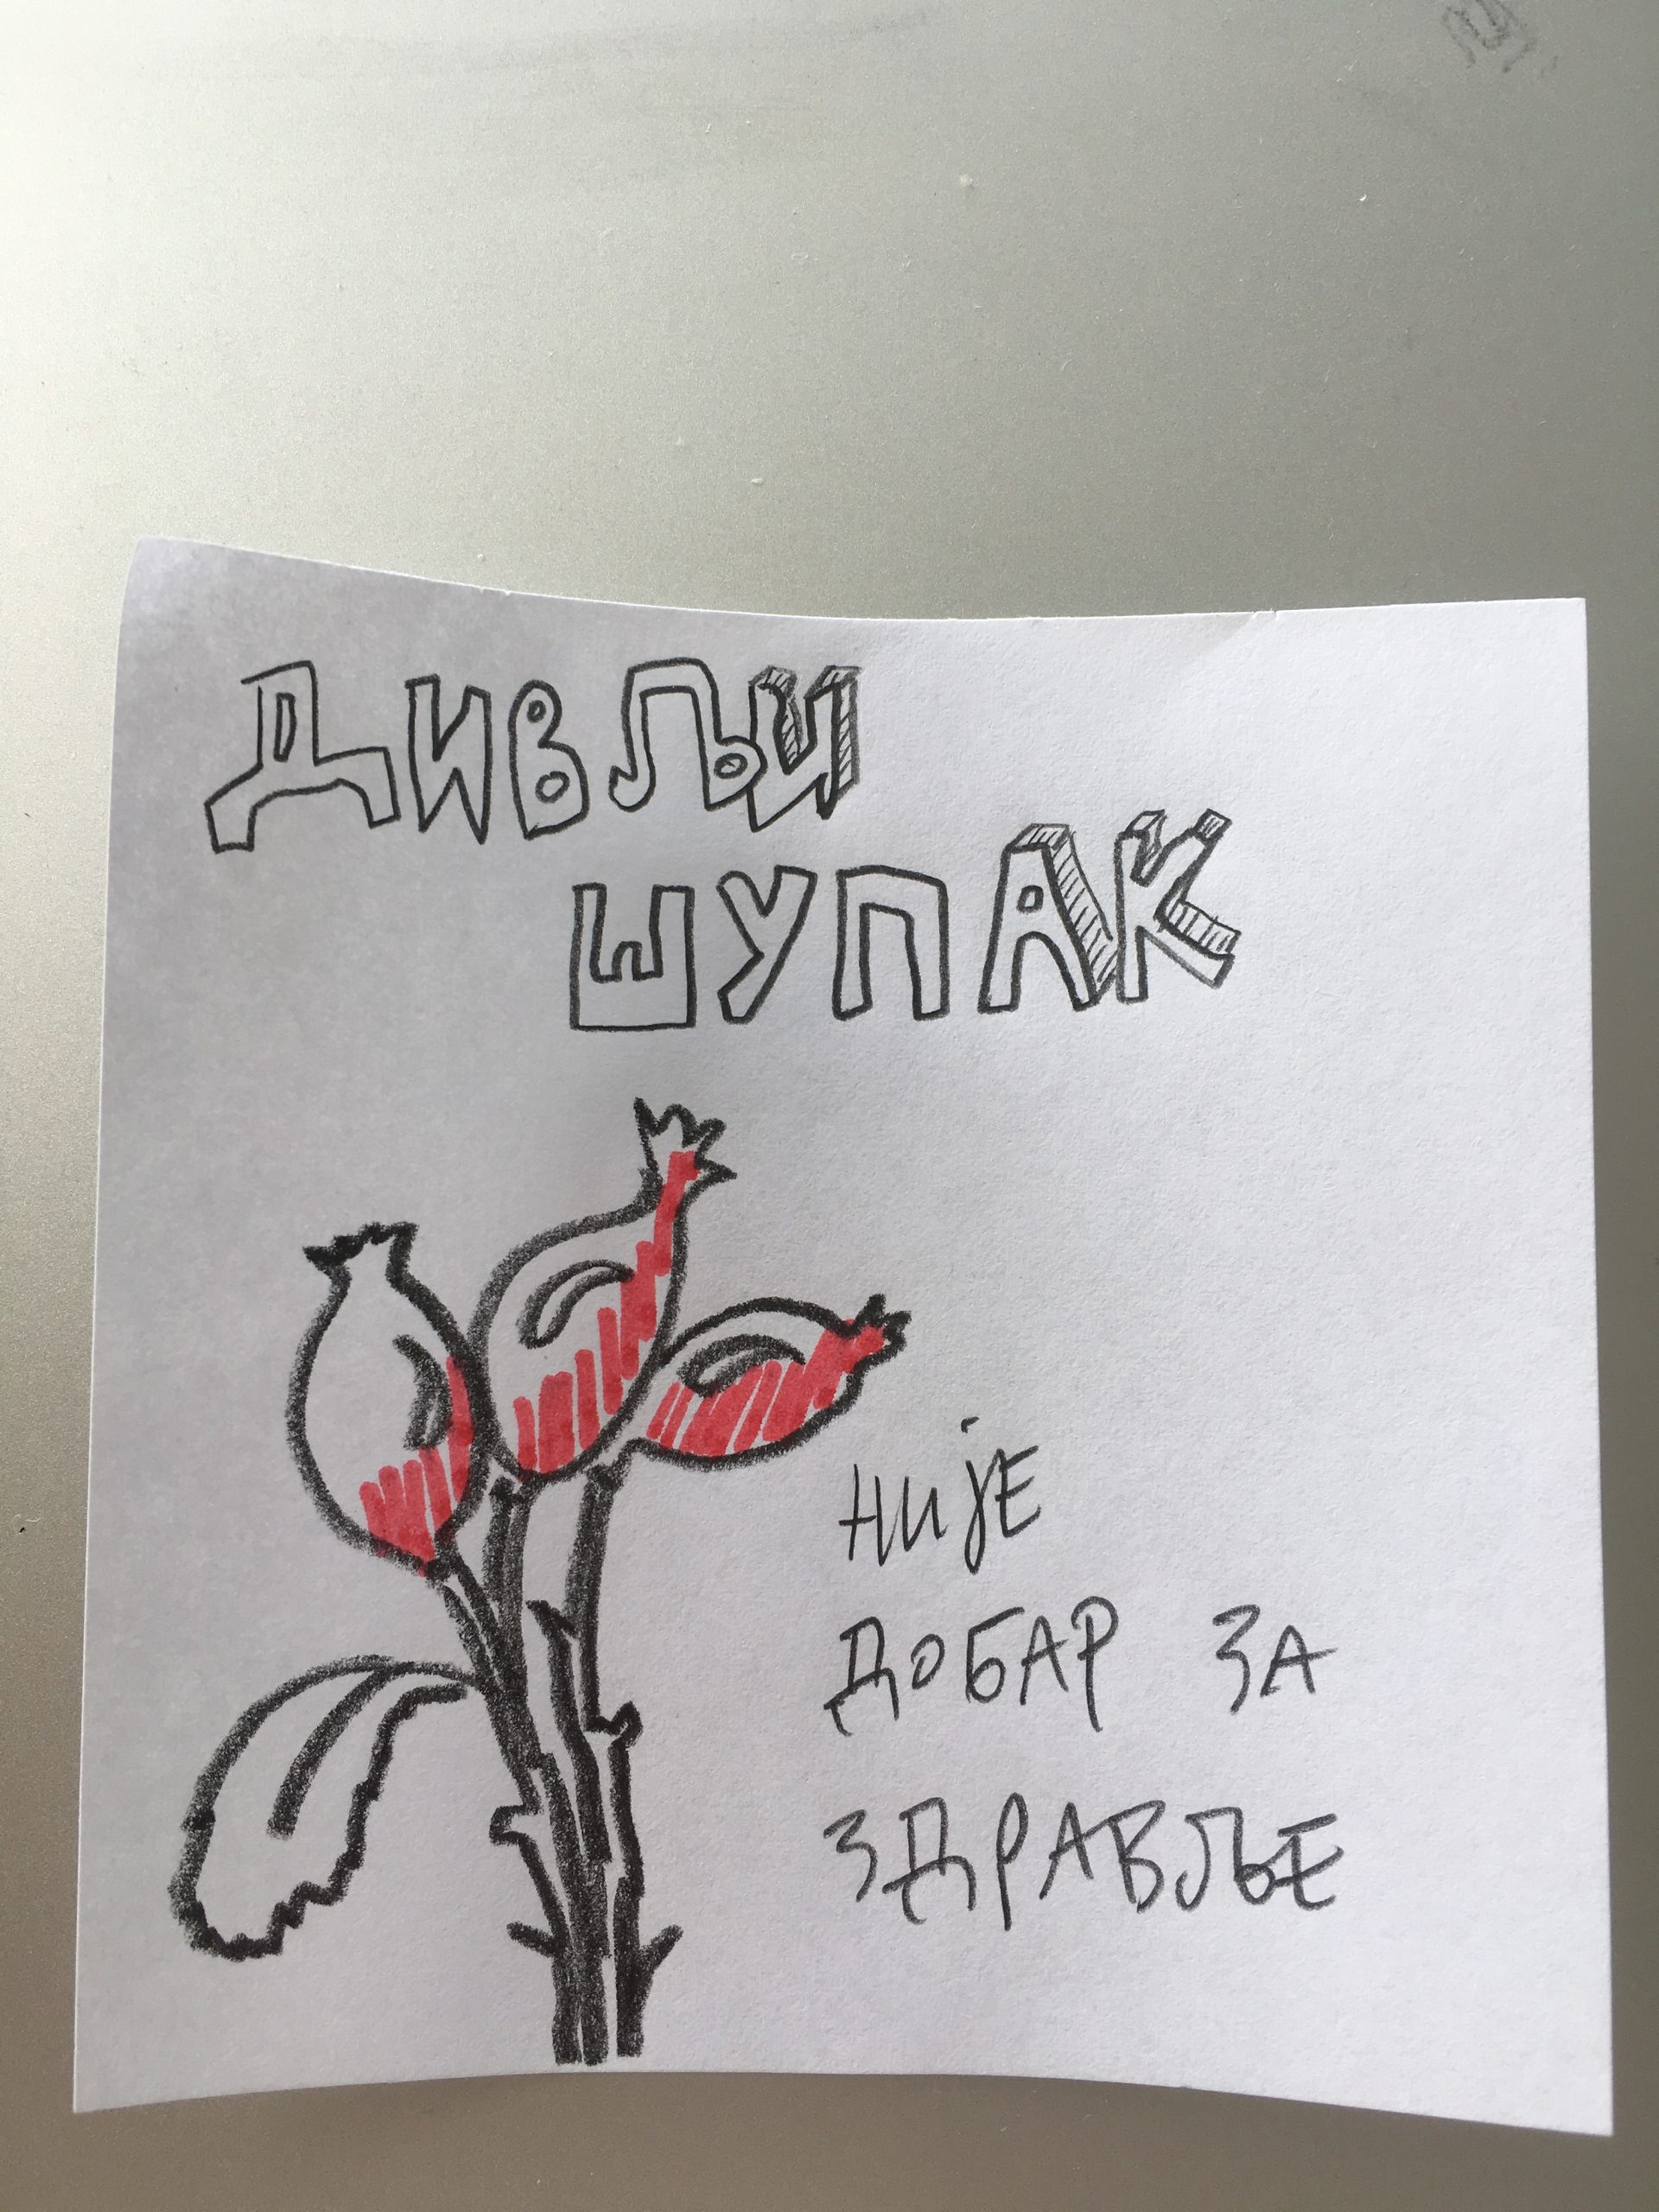 ДИВЉИ
ШУПАК
НИЈЕ
ДОБАР ЗА
ЗДРАВЉЕ